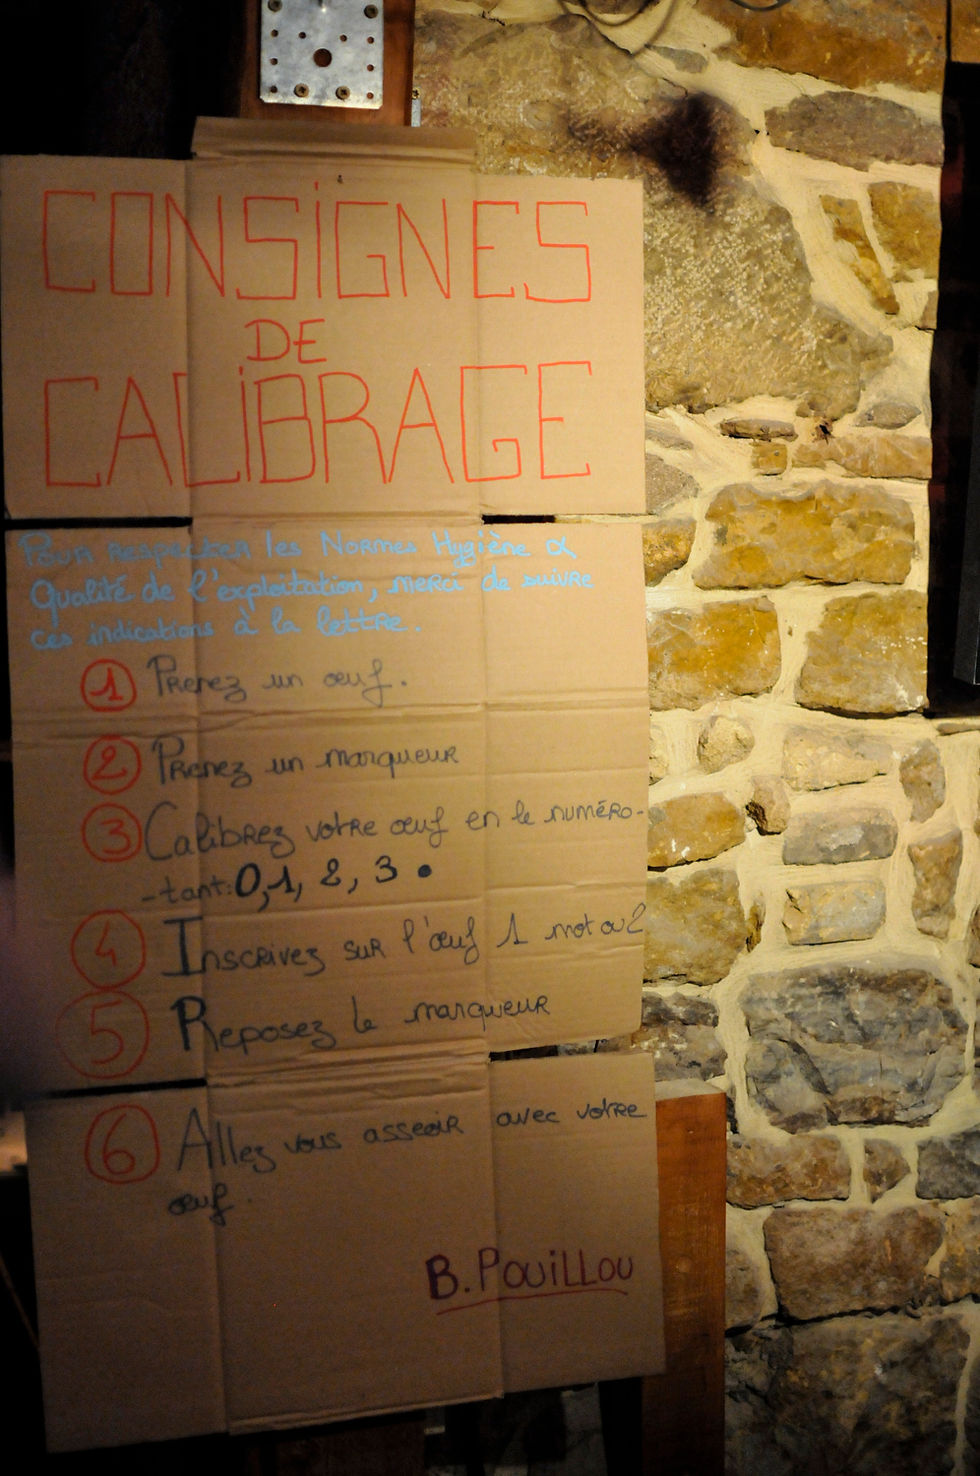 CONSIGNES
DE
CALIBRAGE
Pour respecter les Normes Hygiène &
Qualité de l'exploitation, merci de suivre
ces indications à la lettre.
1 Prenez un œuf.
2 Prenez un marqueur
3 Calibrez votre œuf en le numéro-
-tant: 0, 1, 2, 3.
4 Inscrivez sur l'œuf 1 mot ou 2
5 Reposez le marqueur
6 Allez vous asseoir avec votre
œuf.
B. POUiLLOU